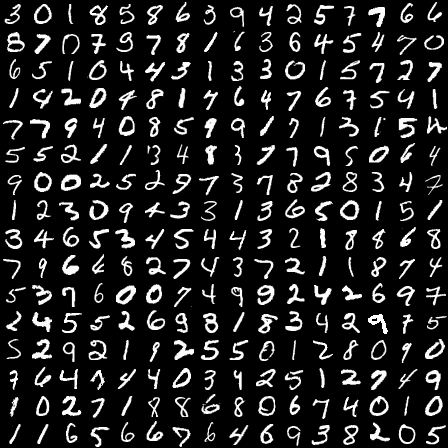 3 0 1 8 5 8 6 3 9 4 2 5 7 7 6 6
8 7 0 7 9 7 8 1 6 3 6 4 5 4 7 0
6 5 1 0 4 4 3 1 3 3 0 1 5 7 2 7
1 4 2 0 4 8 1 7 6 4 7 6 7 5 4 1
7 7 9 4 0 8 5 9 9 1 7 1 3 1 5 4
5 5 2 1 1 3 4 8 3 7 7 9 5 0 6 4
9 0 0 2 5 2 9 7 3 7 8 2 8 3 4 7
1 2 3 0 9 4 3 3 1 3 6 5 0 1 5 1
3 4 6 5 3 4 5 4 4 3 2 1 8 8 6 8
7 9 6 6 8 2 7 4 3 7 2 1 1 8 7 4
5 3 7 6 0 0 7 4 9 9 2 4 2 6 9 7
2 4 5 5 2 6 9 8 1 8 3 4 2 9 7 5
5 2 9 2 1 9 2 5 5 0 1 2 8 0 9 0
7 6 4 7 4 4 0 3 9 2 5 1 2 7 4 9
1 0 2 7 1 8 8 6 8 0 6 7 4 0 1 0
1 1 6 5 6 6 7 6 4 6 9 3 8 2 0 5